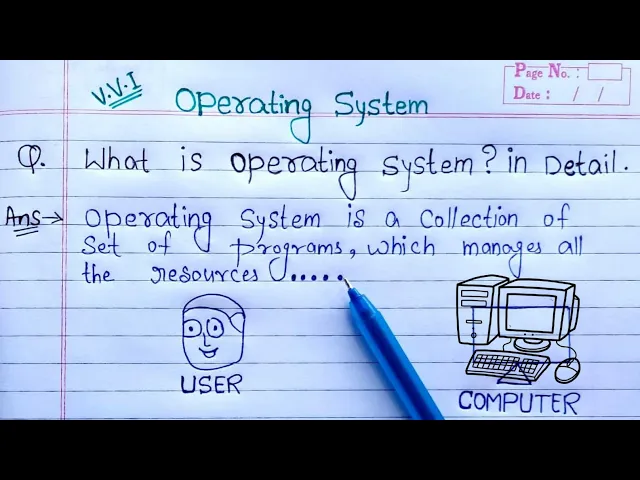 Page No.:
Date: / /
V.V.I
Operating System
Q. What is operating system? in Detail.
Ans → Operating System is a collection of
set of programs, which manages all
the resources .....
USER
COMPUTER